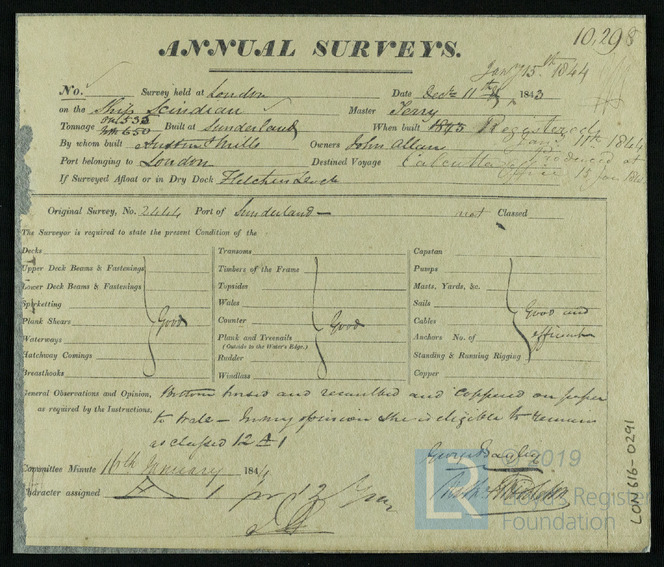 10,298
ANNUAL SURVEYS.
Jany 15th 1844
No. Survey held at London Date Decr 11th 1843
on the Ship Scindian Master Terry
Tonnage 650 Built at Sunderland When built 1843 Registered
By whom built Austin & Mills Owners John Allan Jany 11th 1844
Port belonging to London Destined Voyage Calcutta Produced at
If Surveyed Afloat or in Dry Dock Fletchers Office 15 Jan
Original Survey, No. 2444 Port of Sunderland — Classed
The Surveyor is required to state the present Condition of the
Decks
Upper Deck Beams & Fastenings
Lower Deck Beams & Fastenings
Spirketting
Plank Shears Good
Waterways
Hatchway Comings
Breasthooks
Transoms
Timbers of the Frame
Topsides
Wales
Counter Good
Plank and Treenails
(Outside to the Water's Edge.)
Rudder
Windlass
Capstan
Pumps
Masts, Yards, &c.
Sails
Cables Good and
Anchors No. of efficient
Standing & Running Rigging
Copper
General Observations and Opinion, Bottom and caulked and coppered on paper
as required by the Instructions. to Wale — In my opinion she is eligible to remain
as classed 12 A 1
Committee Minute 16th January 1844
Character assigned A 1 for 12
© 2019
LR
Lloyd's Register
Foundation
LON 616-0291